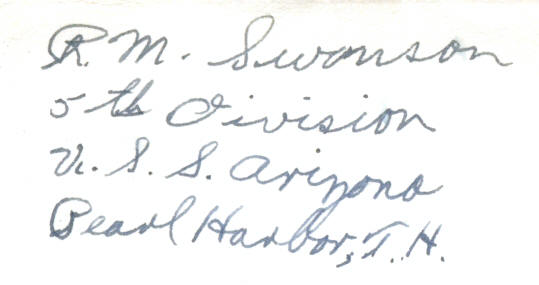 R. M. Swanson
5th Division
U. S. S. Arizona
Pearl Harbor, T. H.